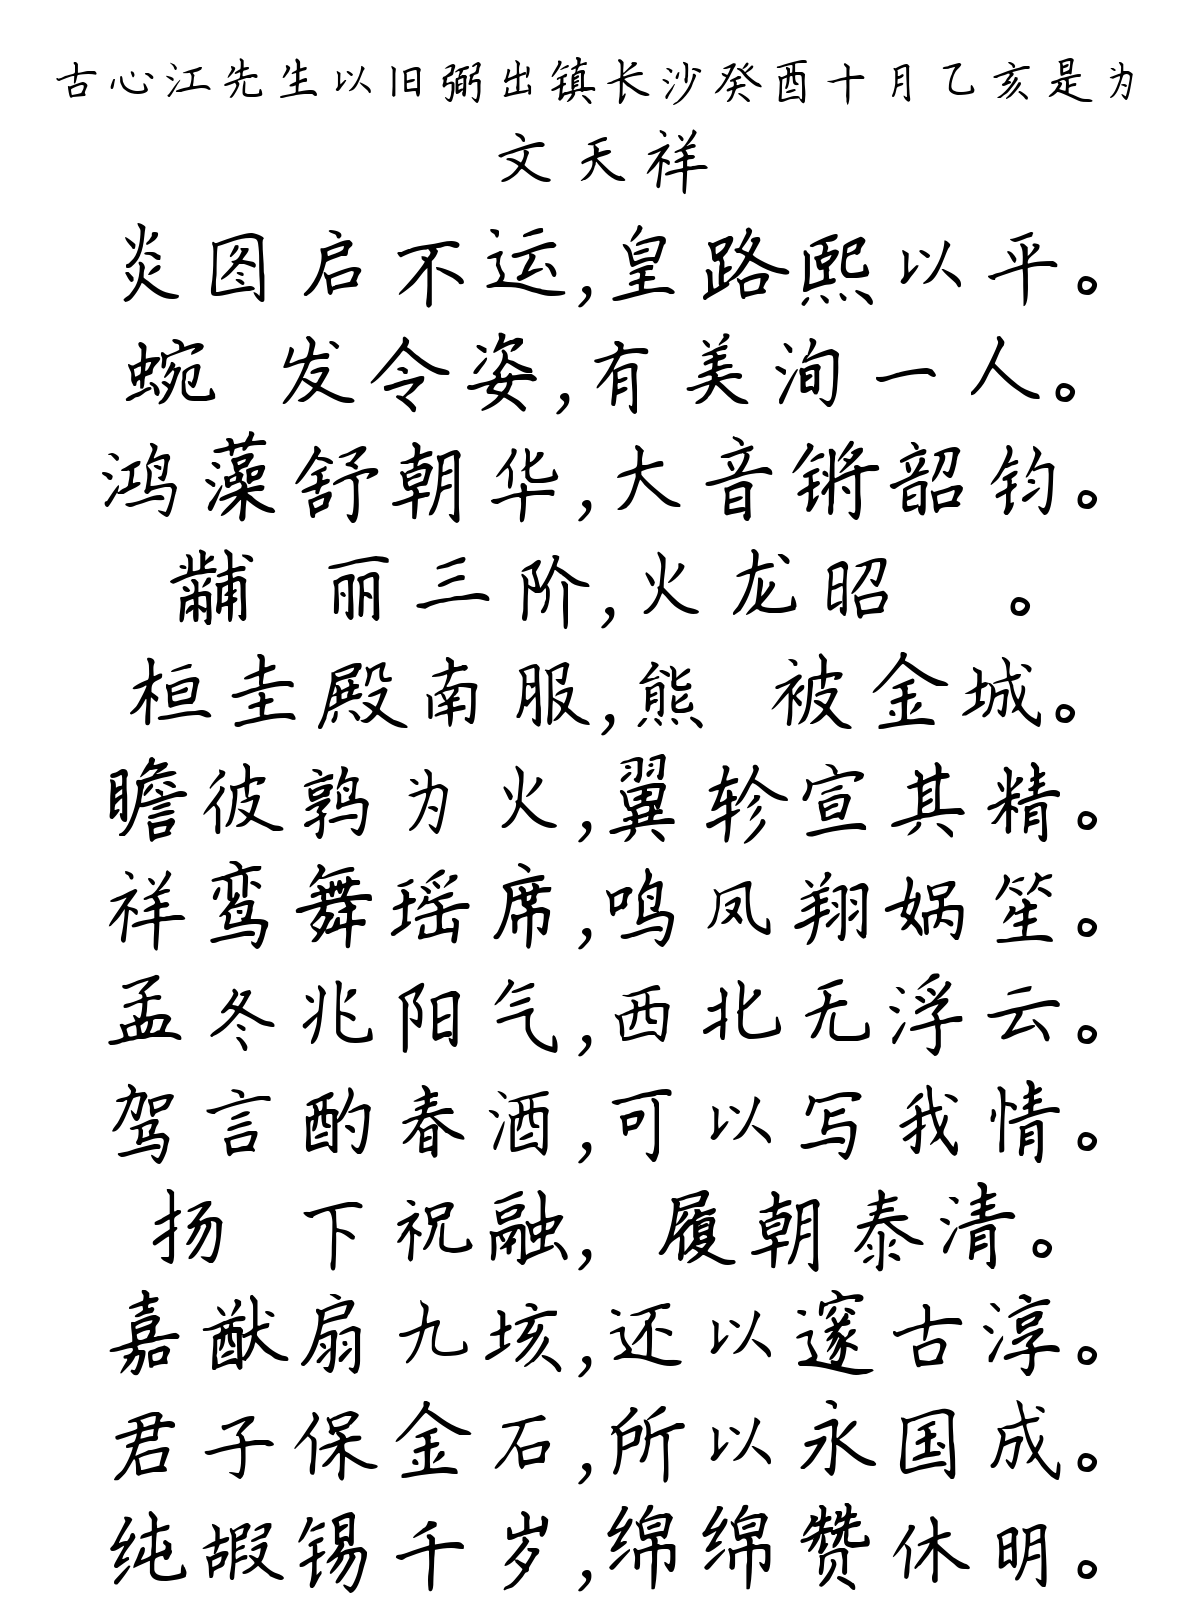 古心江先生以旧弼出镇长沙癸酉十月乙亥是为
文天祥
炎图启不运,皇路熙以平。
蜿 发令姿,有美洵一人。
鸿藻舒朝华,大音锵韶钧。
黼 丽三阶,火龙昭 。
桓圭殿南服,熊 被金城。
瞻彼鹑为火,翼轸宣其精。
祥鸾舞瑶席,鸣凤翔娲笙。
孟冬兆阳气,西北无浮云。
驾言酌春酒,可以写我情。
扬 下祝融, 履朝泰清。
嘉猷扇九垓,还以邃古淳。
君子保金石,所以永国成。
纯嘏锡千岁,绵绵赞休明。